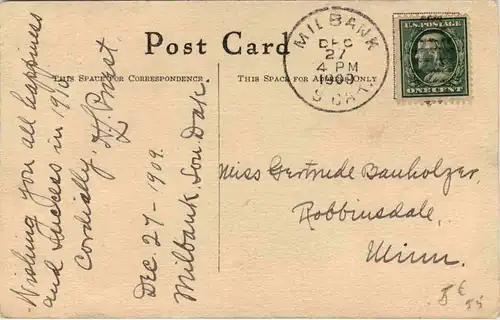 Post Card
THIS SPACE FOR CORRESPONDENCE
THIS SPACE FOR ADDRESS ONLY
MILBANK
DEC
27
4 PM
1909
S. DAK.
U.S. POSTAGE
ONE CENT
Wishing you all happiness
and success in 1910
Cordially
Dec. 27-1909.
Milbank, Sou. Dak.
Miss Gertrude Bauholzer,
Robbinsdale,
Minn.